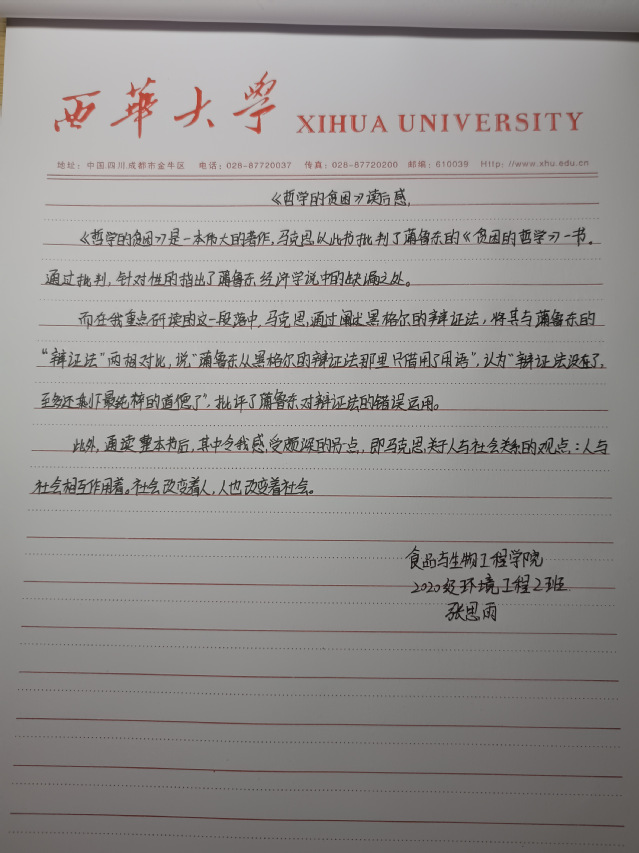 西華大學 XIHUA UNIVERSITY
地址：中国四川成都市金牛区 电话：028-87720037 传真：028-87720200 邮编：610039 Http：//www.xhu.edu.cn
《哲学的贫困》读后感
《哲学的贫困》是一本伟大的著作，马克思以此书批判了蒲鲁东的《贫困的哲学》一书。
通过批判，针对性的指出了蒲鲁东经济学说中的缺漏之处。
而在我重点研读的这一段落中，马克思通过阐述黑格尔的辩证法，将其与蒲鲁东的
“辩证法”两相对比，说“蒲鲁东从黑格尔的辩证法那里只借用了用语”，认为“辩证法没有了，
至多还剩下最纯粹的道德了”，批评了蒲鲁东对辩证法的错误运用。
此外，通读整本书后，其中令我感受颇深的另点，即马克思关于人与社会关系的观点：人与
社会相互作用着。社会改变着人，人也改变着社会。
食品与生物工程学院
2020级环境工程2班
张思雨